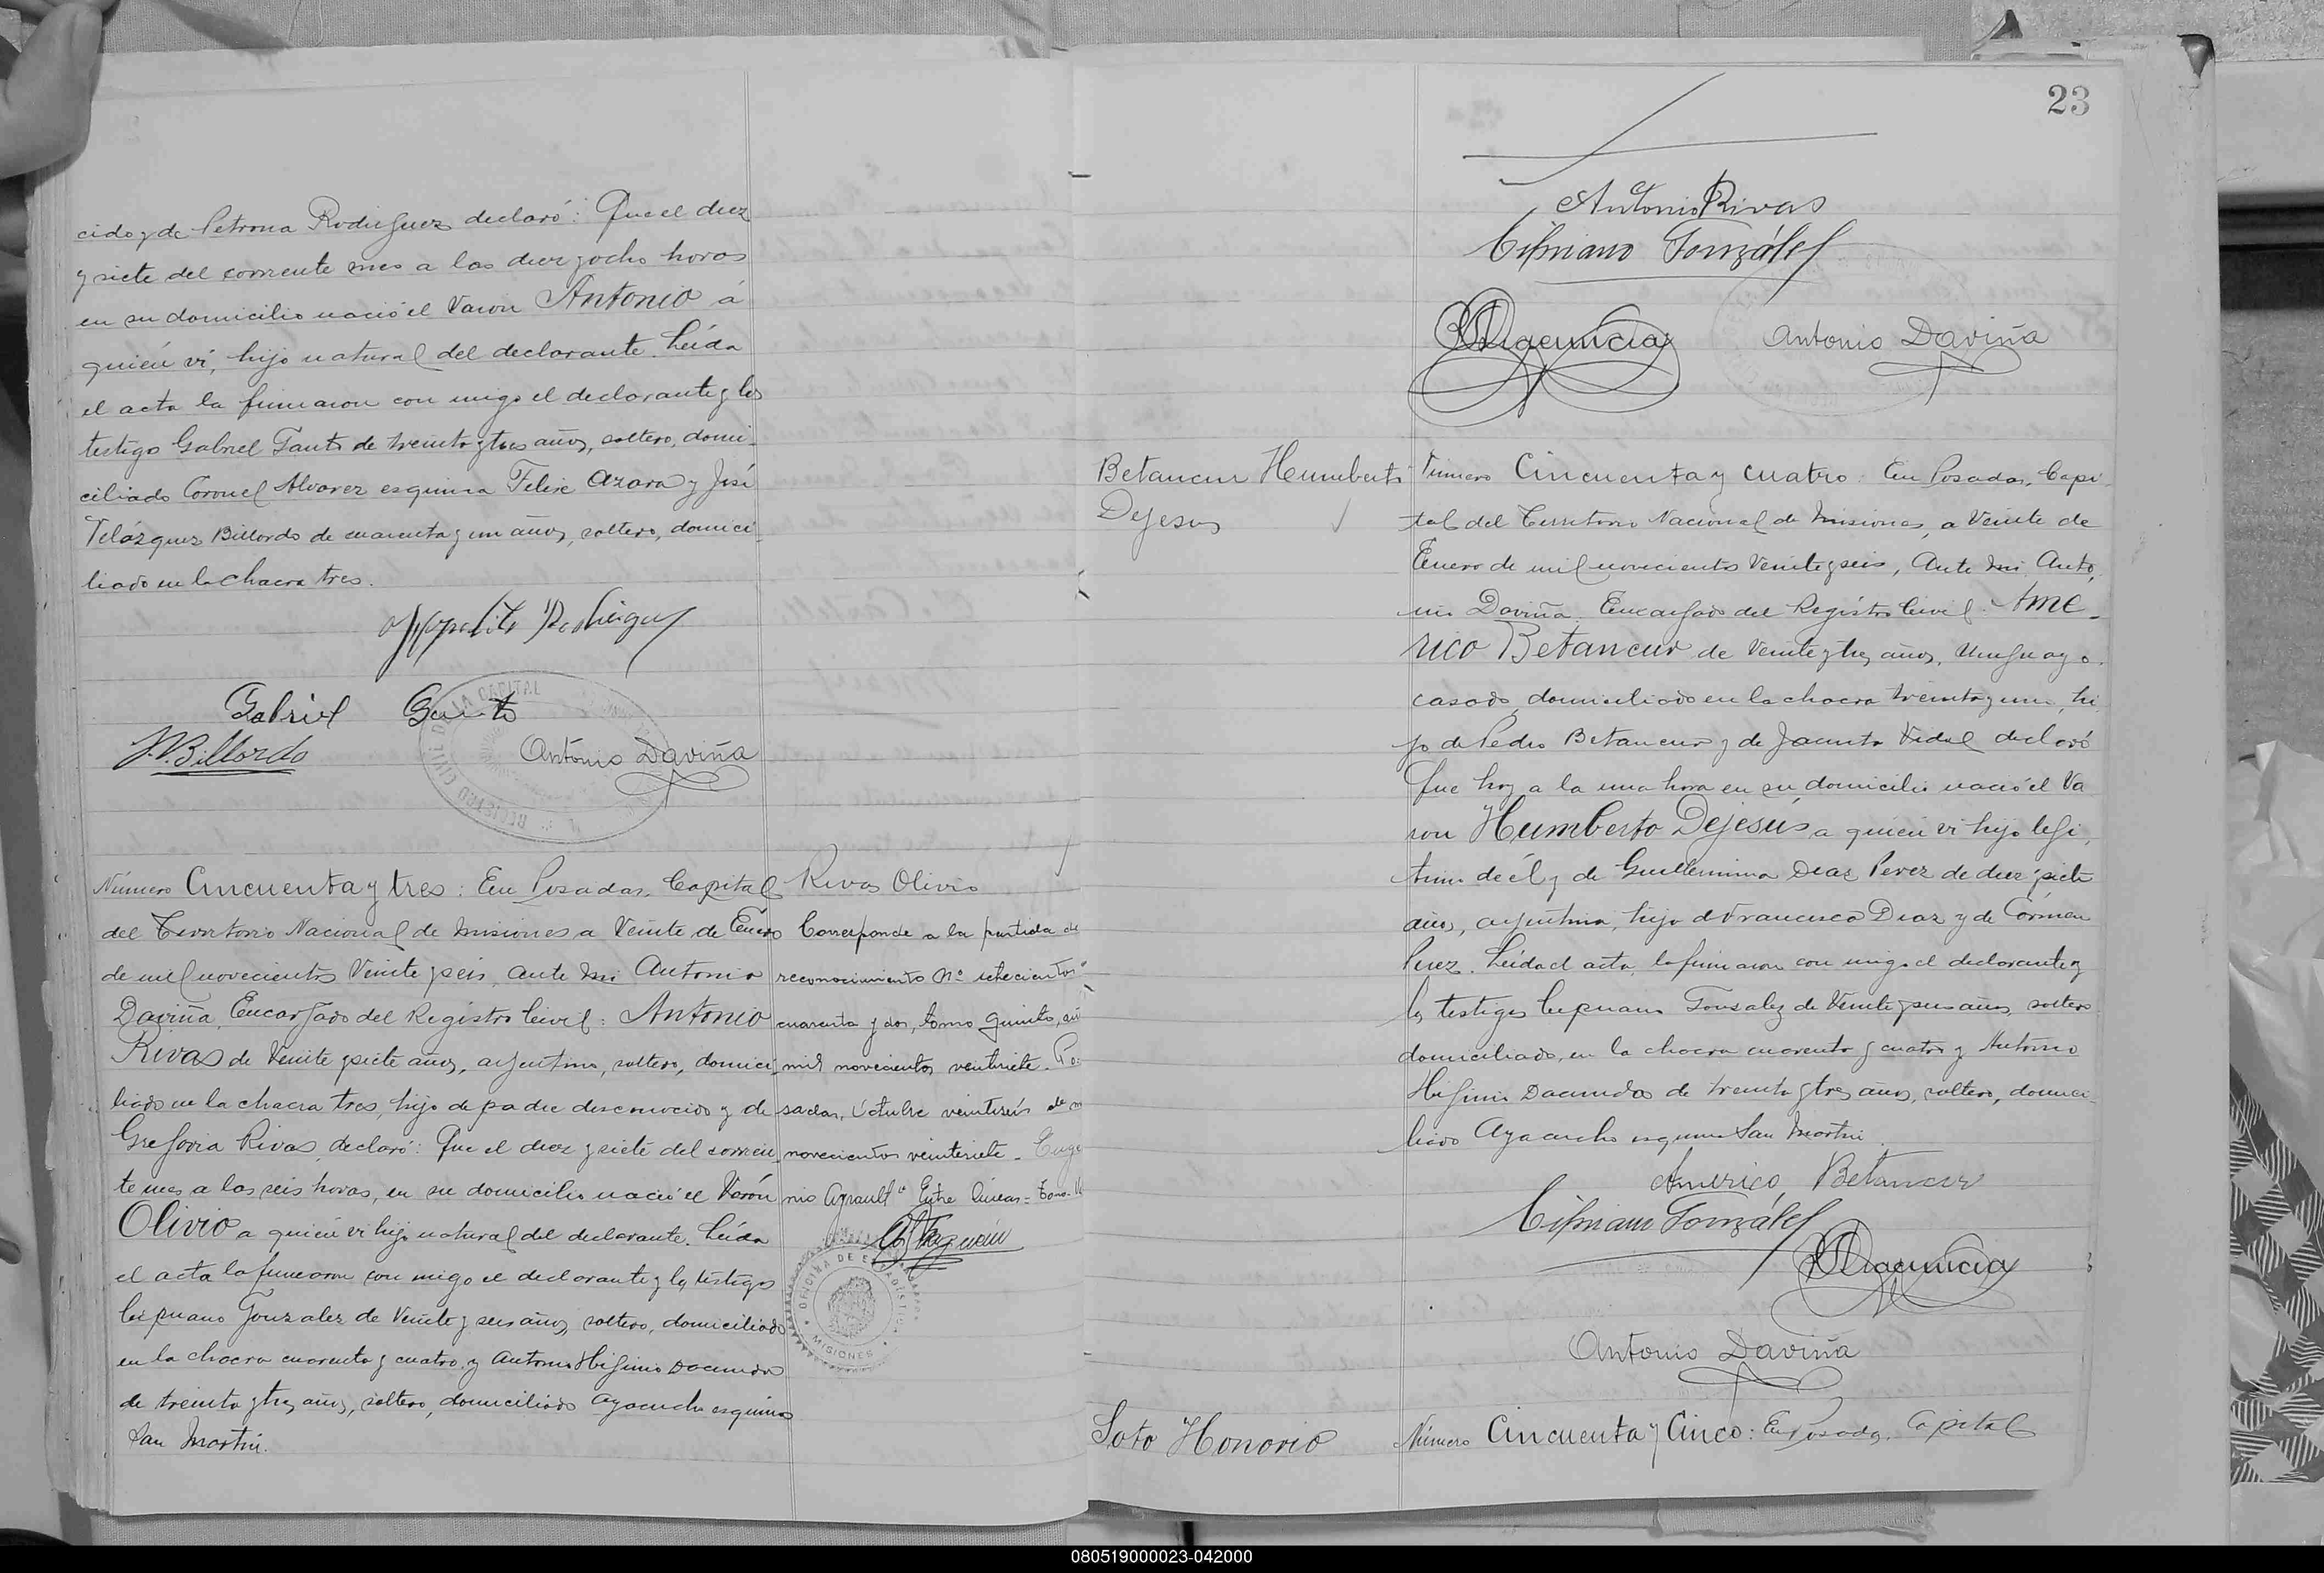 cido y de Petrona Rodriguez declaró: Que el diez
y siete del corriente mes a las diez y ocho horas
en su domicilio nació el Varon Antonio á
quién ví, hijo natural del declarante. Leída
el acta la firmaron con migo el declarante y los
testigo Gabriel Gauto de treinta y tres años, soltero, domi-
ciliado Coronel Alvarez esquina Felix Azara y José
Velázquez Billordo de cuarenta y un años, soltero, domici-
liado en la chacra tres.
Gabriel Gauto
J. V. Billordo
Antonio Daviña
Número Cincuenta y tres: En Posadas, Capital
del Territorio Nacional de Misiones a Veinte de Enero
de mil novecientos Veinte y seis, ante mi Antonio
Daviña, Encargado del Registro Civil: Antonio
Rivas de Veinte y siete años, argentino, soltero, domici-
liado en la chacra tres, hijo de padre desconocido y de
Gregoria Rivas, declaró: Que el diez y siete del corrien-
te mes a las seis horas, en su domicilio nació el Varón
Olivio a quién ví hijo natural del declarante. Leída
el acta la firmaron con migo el declarante y los testigos
Cipriano Gonzalez de Veinte y seis años, soltero, domiciliado
en la chacra cuarenta y cuatro y Antonio Higinio Dacunda
de treinta y tres años, soltero, domiciliado Ayacucho esquina
San Martin.
Rivas Olivio
Corresponde a la partida de
reconocimiento Nº setecientos
cuarenta y dos, tomo quinto,
mil novecientos veintisiete. Po-
sadas, Octubre veintiseis de m
novecientos veintisiete. Euge
nio Entre lineas =
OFICINA DE ESTADISTICA
MISIONES
23
Antonio Rivas
Cipriano González
Antonio Daviña
Betancur Humberto
Dejesus
Número Cincuenta y cuatro: En Posadas, Capi-
tal del Territorio Nacional de Misiones, a Veinte de
Enero de mil novecientos Veinte y seis, Ante mi Anto-
nio Daviña, Encargado del Registro Civil: Amé-
rico Betancur de Veinte y tres años, Uruguayo,
casado, domiciliado en la chacra treinta y uno, hi-
jo de Pedro Betancur y de Jacinta Vidal declaró
Que hoy a la una hora en su domicilio nació el Va
ron Humberto Dejesús a quién ví hijo legí-
timo de él y de Guillermina Diaz Perez de diez y siete
años, argentina, hija de Francisco Diaz y de Cármen
Perez. Leída el acta, la firmaron con migo el declarante y
los testigos Cipriano Gonzalez de Veinte y seis años, soltero
domiciliado, en la chacra cuarenta y cuatro y Antonio
Higinio Dacunda de treinta y tres años, soltero, domici-
liado Ayacucho esquina San Martin.
Americo Betancur
Cipriano González
Antonio Daviña
Soto Honorio
Número Cincuenta y Cinco: En Posadas, Capital
080519000023-042000